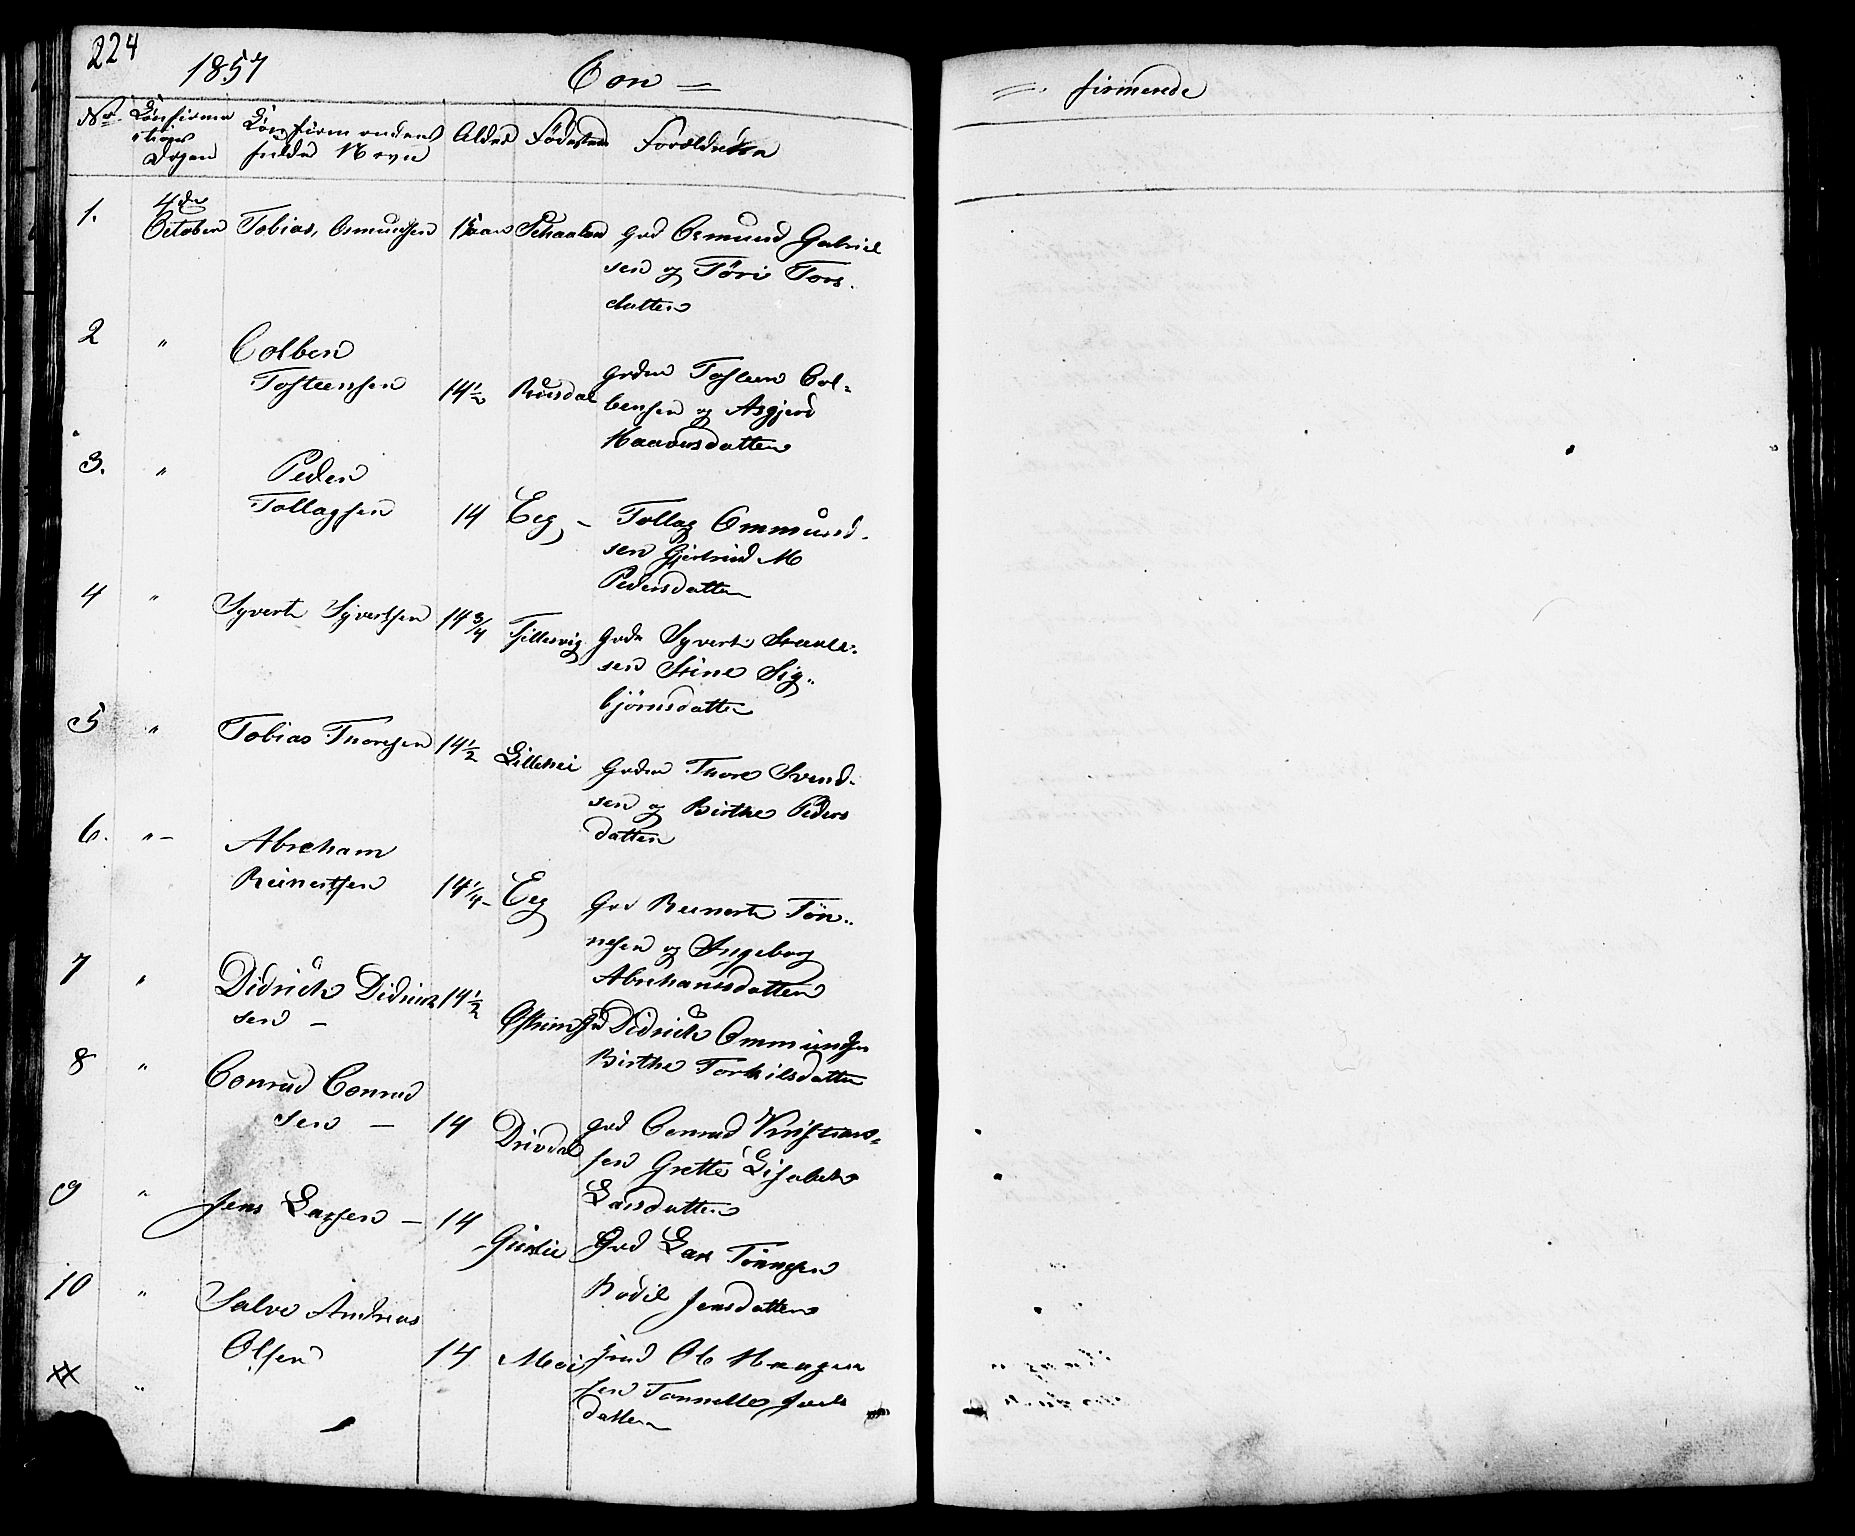 224
1857 Con =
=. firmerede
No. Konfirma Konfirmandens Alder Fødested Forældrene
tions fulde Navn
Dagen
1. 4de
October Tobias, Osmundsen 15 aar Schaaland Gd Osmund Gabriel
sen og Töri Tors.
datter
2 " Colben
Tosteensen 14½ Ruusdal Gdm Tosteen Col-
bensen og Asgjerd
Haaversdatter
3. " Peder
Tollagsen 14 Eeg - Tollag Ommund.
sen Gjertrud M
Pedersdatter
4 " Syvert Syvertsen 14 3/4 Tjellesvig Gdm Syvert Staale.
sen Stine Sig..
bjørnsdatter
5 " Tobias Thoresen 14½ Lillehei Gdm Thore Svend.
sen og Birthe Peders
datter
6. " - Abraham
Reinertsen 14¼ - Eeg Gd Reinert Tön..
nesen og Ingeborg
Abrahamsdatter
7 " Didrick Didrick 14½
sen - Østreim Gd Didrick Ommundsen
Birthe Torkilsdatter
8 " Conrad Conrad
sen - 14 Drivdal Gd Conrad Kristians-
sen Grette Lisabeth
Larsdatter
9 " Jens Larsen - 14 Gd Lars Tönnesen
Bodil Jensdatter
10 " Salve Andreas
Olsen 14 Moi Ole
sen Tonnette
datter
"